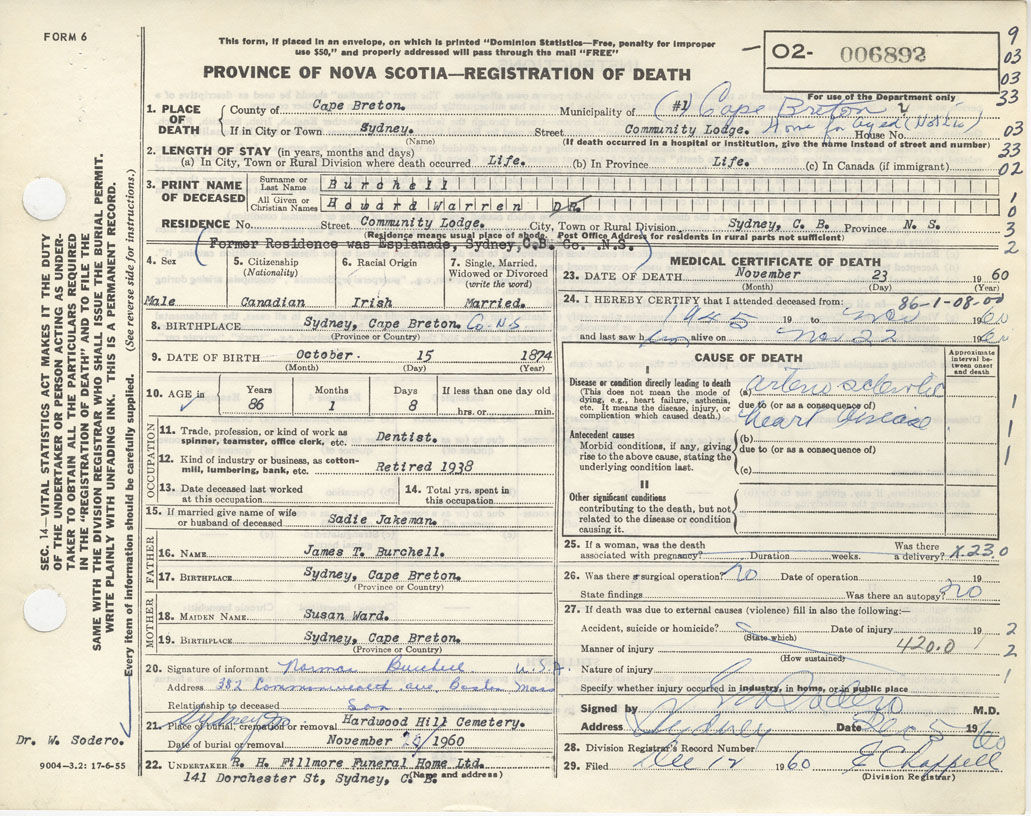 FORM 6
This form, if placed in an envelope, on which is printed "Dominion Statistics—Free, penalty for improper
use $50," and properly addressed will pass through the mail "FREE"
PROVINCE OF NOVA SCOTIA—REGISTRATION OF DEATH
02- 006892
For use of the Department only
9
03
03
33
03
33
02
1
0
3
2
1. PLACE OF DEATH
County of Cape Breton. Municipality of (#1) Cape Breton
If in City or Town Sydney. Street Community Lodge. Home for Aged House No.
(Name) (If death occurred in a hospital or institution, give the name instead of street and number)
2. LENGTH OF STAY (in years, months and days)
(a) In City, Town or Rural Division where death occurred Life. (b) In Province Life. (c) In Canada (if immigrant)
3. PRINT NAME OF DECEASED
Surname or Last Name Burchell
All Given or Christian Names Howard Warren DR.
RESIDENCE No. Street Community Lodge. City, Town or Rural Division Sydney, C. B. Province N. S.
(Residence means usual place of abode. Post Office Address for residents in rural parts not sufficient)
(Former Residence was Esplanade, Sydney, C.B. Co. N.S.)
4. Sex Male
5. Citizenship (Nationality) Canadian
6. Racial Origin Irish
7. Single, Married, Widowed or Divorced (write the word) Married.
8. BIRTHPLACE Sydney, Cape Breton. Co. N.S
(Province or Country)
9. DATE OF BIRTH October. 15 1874
(Month) (Day) (Year)
10. AGE in Years 86 Months 1 Days 8 If less than one day old hrs. or min.
OCCUPATION
11. Trade, profession, or kind of work as spinner, teamster, office clerk, etc. Dentist.
12. Kind of industry or business, as cotton-mill, lumbering, bank, etc. Retired 1938
13. Date deceased last worked at this occupation
14. Total yrs. spent in this occupation
15. If married give name of wife or husband of deceased Sadie Jakeman.
FATHER
16. NAME James T. Burchell.
17. BIRTHPLACE Sydney, Cape Breton.
(Province or Country)
MOTHER
18. MAIDEN NAME Susan Ward.
19. BIRTHPLACE Sydney, Cape Breton
(Province or Country)
20. Signature of informant Norman Burchell U.S.A.
Address 382 Commonwealth ave, Boston Mass
Relationship to deceased Son
21. Place of burial, cremation or removal Sydney Hardwood Hill Cemetery.
Date of burial or removal November /1960
22. UNDERTAKER R. H. Fillmore Funeral Home Ltd.
(Name and address)
141 Dorchester St, Sydney, C. B.
MEDICAL CERTIFICATE OF DEATH
23. DATE OF DEATH November 23 1960
(Month) (Day) (Year)
24. I HEREBY CERTIFY that I attended deceased from: 86-1-08-00
1945 19 to Nov 1960
and last saw him alive on Nov 22 1960
CAUSE OF DEATH
Approximate interval between onset and death
I
Disease or condition directly leading to death
(This does not mean the mode of dying, e.g., heart failure, asthenia, etc. It means the disease, injury, or complication which caused death.)
(a) arterio sclerotic
due to (or as a consequence of)
heart disease
Antecedent causes
Morbid conditions, if any, giving rise to the above cause, stating the underlying condition last.
(b)
due to (or as a consequence of)
(c)
II
Other significant conditions contributing to the death, but not related to the disease or condition causing it.
1
1
1
25. If a woman, was the death associated with pregnancy? Duration weeks. Was there a delivery? X.23.0
26. Was there surgical operation? no Date of operation 19
State findings Was there an autopsy? no
27. If death was due to external causes (violence) fill in also the following:—
Accident, suicide or homicide? Date of injury 19 2
(State which)
Manner of injury 420.0 2
(How sustained)
Nature of injury 1
Specify whether injury occurred in industry, in home, or in public place
Signed by Sodero M.D.
Address Sydney Date Dec 5 1960
28. Division Registrar's Record Number
29. Filed Dec 12 1960 E Chappell
(Division Registrar)
SEC. 14—VITAL STATISTICS ACT MAKES IT THE DUTY
OF THE UNDERTAKER OR PERSON ACTING AS UNDER-
TAKER TO OBTAIN ALL THE PARTICULARS REQUIRED
IN THE "REGISTRATION OF DEATH" AND TO FILE THE
SAME WITH THE DIVISION REGISTRAR WHO SHALL ISSUE THE BURIAL PERMIT.
WRITE PLAINLY WITH UNFADING INK. THIS IS A PERMANENT RECORD.
Every item of information should be carefully supplied. (See reverse side for instructions.)
Dr. W. Sodero.
9004—3.2: 17-6-55